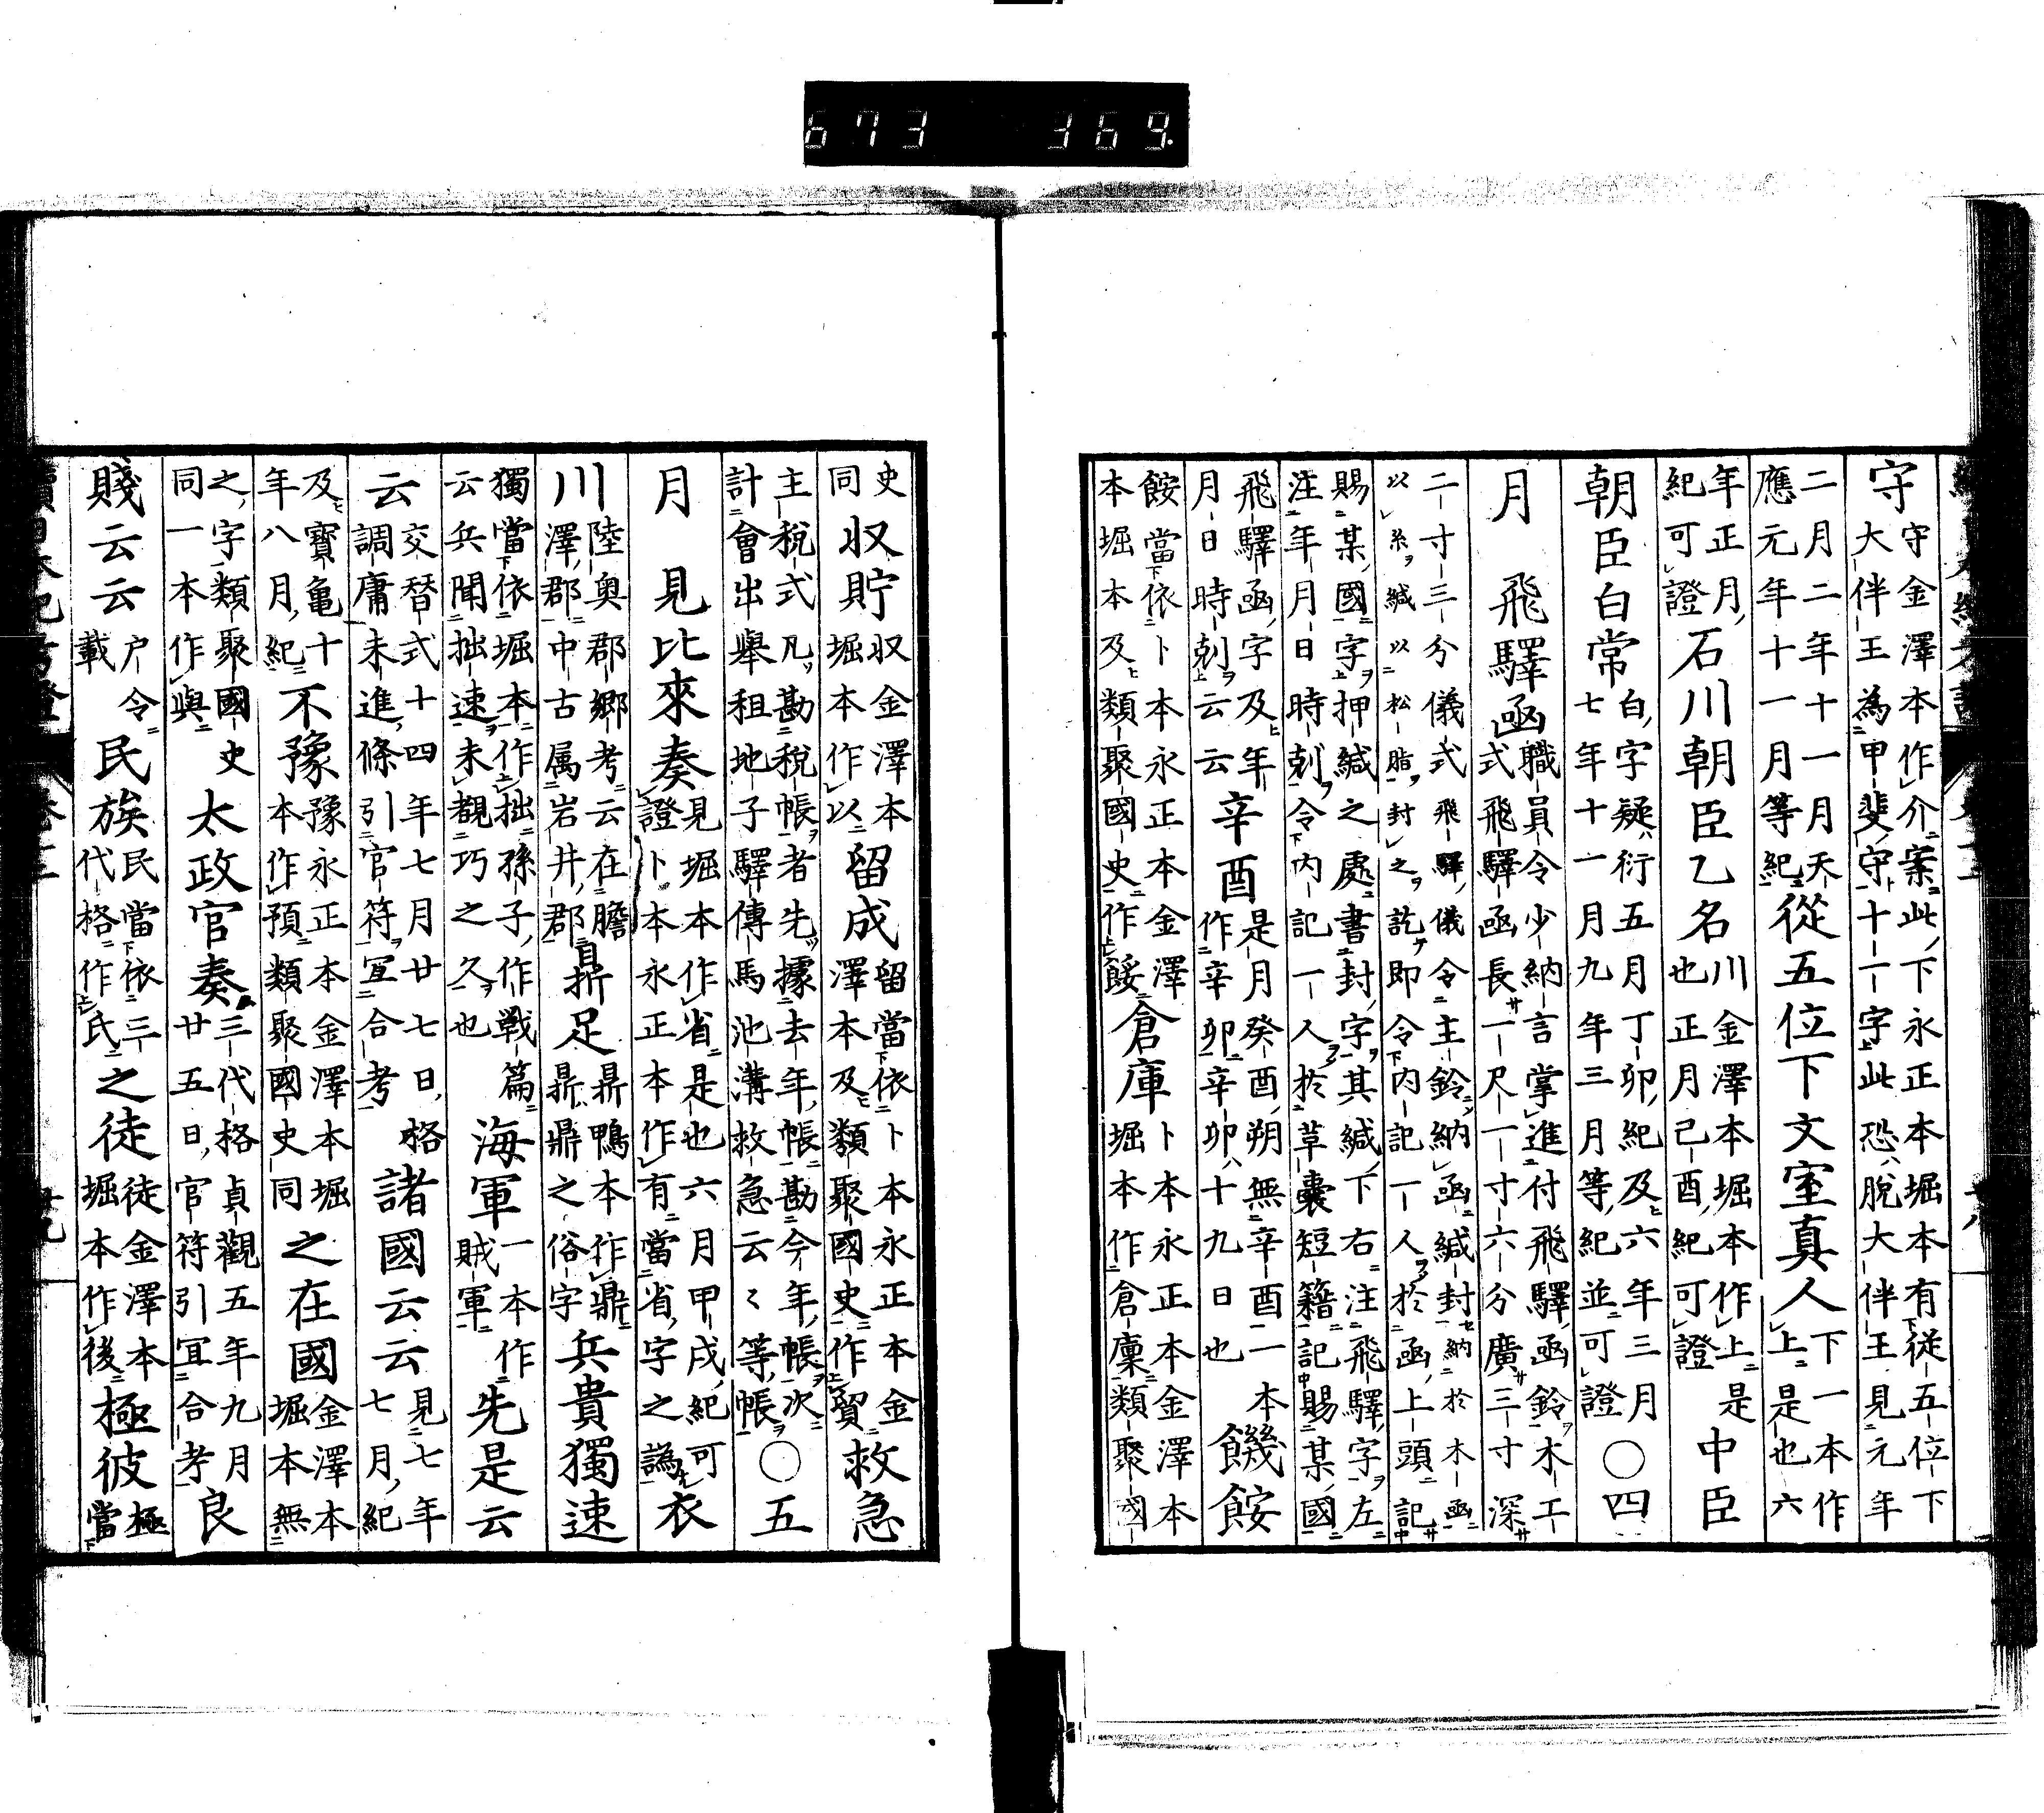 673 369.
守 守金澤本作介案此下永正本堀本有從五位下
大伴王為甲斐守十一字此恐脫大伴王見元年
二月二年十一月天 從五位下文室真人 下一本作
應元年十一月等紀 上是也六
年正月 石川朝臣乙名 川金澤本堀本作上是 中臣
紀可證 也正月己酉紀可證
朝臣白常 白字疑衍五月丁卯紀及六年三月 〇四
七年十一月九年三月等紀並可證
月 飛驛函 職員令少納言掌進付飛驛函鈴木工
式飛驛函長一尺一寸六分廣三寸深
二寸三分儀式飛驛儀令主鈴納函緘封納於木函
以糸緘以松脂封之訖即令內記一人於函上頭記
賜某國字押緘之處書封字其緘下右注飛驛字左
注年月日時剋令內記一人於草囊短籍記賜某國
飛驛函字及年 辛酉 是月癸酉朔無辛酉一本 饑餒
月日時剋云云 作辛卯辛卯十九日也
餒當依卜本永正本金澤 倉庫 卜本永正本金澤本
本堀本及類聚國史作餒 堀本作倉廩類聚國
史 収貯 収金澤本 留成 留當依卜本永正本金 救急
同 堀本作以 澤本及類聚國史作貿
主稅式凡勘稅帳者先據去年帳勘今年帳次 〇五
計會出舉租地子驛傳馬池溝救急云々等帳
月 見比來奏 見堀本作省是也六月甲戌紀可 衣
證卜本永正本作有當省字之譌
川 陸奥郡郷考云在膽 折足 鼎鴨本作鼎 兵貴獨速
澤郡中古属岩井郡 鼎之俗字
獨當依堀本作拙孫子作戰篇 海軍 一本作 先是云
云兵聞拙速未覩巧之久也 賊軍
云 交替式十四年七月廿七日格 諸國云云 見七年
調庸未進條引官符宜合考 七月紀
及寶亀十 不豫 豫永正本金澤本堀 之在國 金澤本
年八月紀 本作預類聚國史同 堀本無
之字類聚國史 太政官奏 三代格貞觀五年九月 良
同一本作與 廿五日官符引宜合考
賤云云 戸令 民族 民當依三 之徒 徒金澤本 極彼 極
載 代格作氏 堀本作後 當